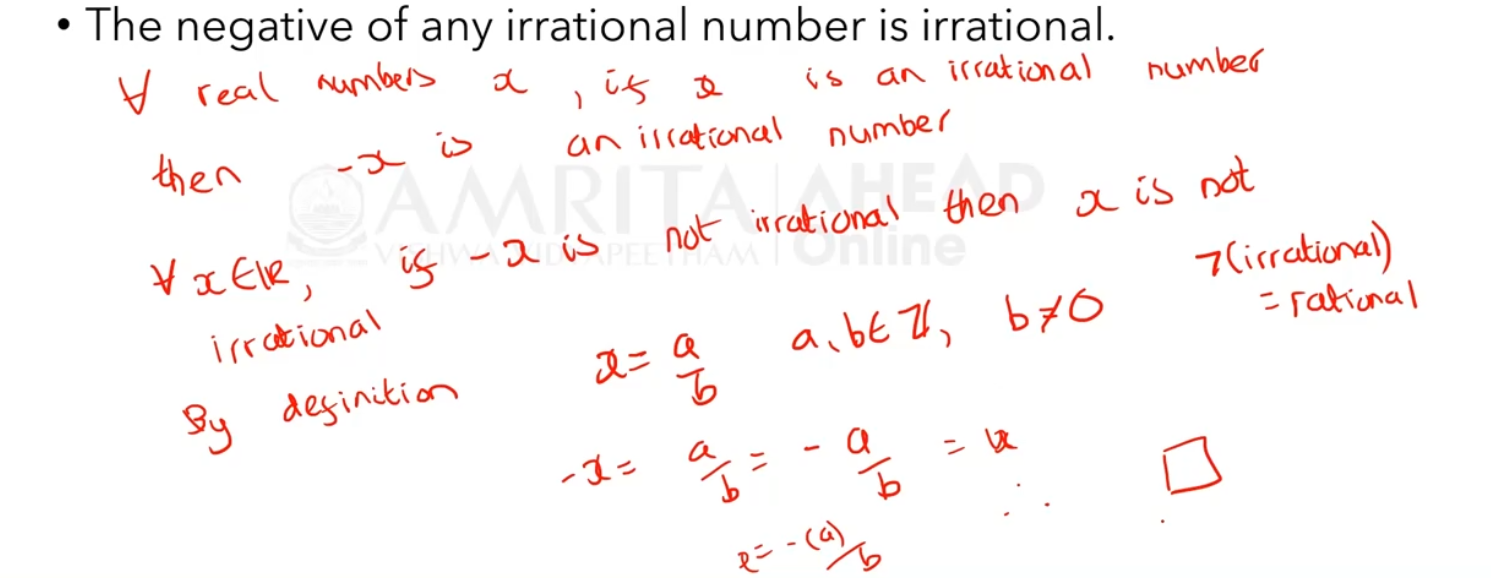 • The negative of any irrational number is irrational.
∀ real numbers x, if x is an irrational number
then -x is an irrational number
AMRITA | AHEAD
VISHWA VIDYAPEETHAM | Online
∀ x∈ℝ, if -x is not irrational then x is not
irrational
¬(irrational)
= rational
By definition x = a/b a, b ∈ ℤ, b≠0
-x = a/b = - a/b = x
∴ □
= -(a)/b